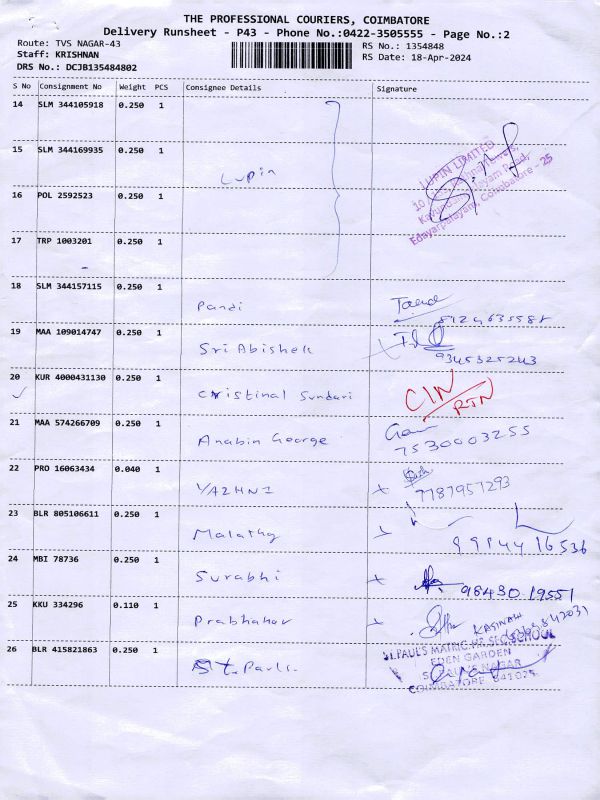 THE PROFESSIONAL COURIERS, COIMBATORE
Delivery Runsheet - P43 - Phone No.:0422-3505555 - Page No.:2
Route: TVS NAGAR-43
RS No.: 1354848
Staff: KRISHNAN
RS Date: 18-Apr-2024
DRS No.: DCJB135484802
S No Consignment No Weight PCS Consignee Details Signature
14 SLM 344105918 0.250 1
15 SLM 344169935 0.250 1
Lupin
LUPIN LIMITED
Coimbatore - 25
16 POL 2592523 0.250 1
17 TRP 1003201 0.250 1
18 SLM 344157115 0.250 1
Pandi
19 MAA 109014747 0.250 1
Sri Abishek 9345325243
20 KUR 4000431130 0.250 1
Cristinal Sundari CIN/RTN
21 MAA 574266709 0.250 1
Anabin George 7530003255
22 PRO 16063434 0.040 1
YAZHNI 7787957293
23 BLR 805106611 0.250 1
Malathy 99944 16536
24 MBI 78736 0.250 1
Surabhi 98430 19551
25 KKU 334296 0.110 1
Prabhakar
26 BLR 415821863 0.250 1
St. Pauls.
ST.PAUL'S MATRIC.HR.SEC.SCHOOL
EDEN GARDEN
ST.PAUL'S NAGAR
COIMBATORE - 641025